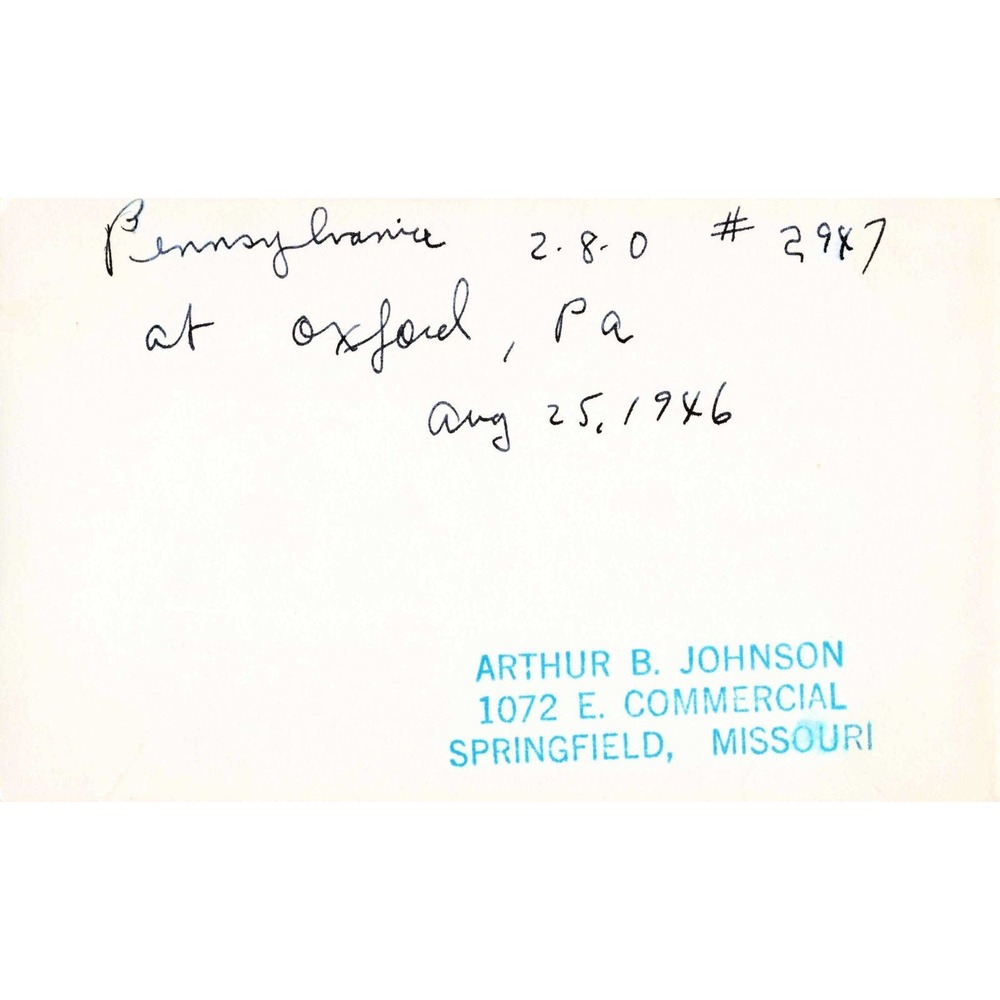 Pennsylvania 2-8-0 # 2947
at Oxford, Pa
Aug 25, 1946
ARTHUR B. JOHNSON
1072 E. COMMERCIAL
SPRINGFIELD, MISSOURI